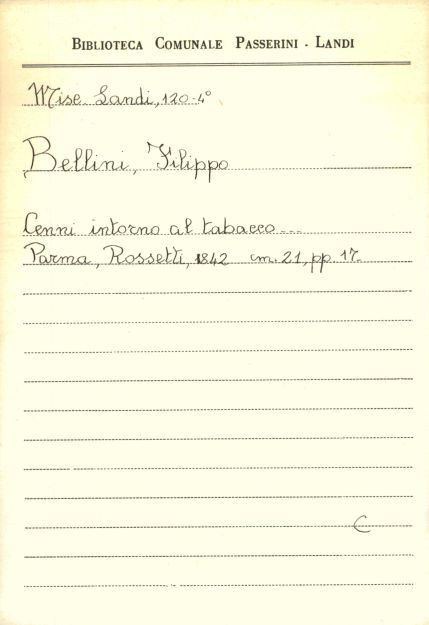 BIBLIOTECA COMUNALE PASSERINI - LANDI
Misc. Landi, 120-4°
Bellini, Filippo
Cenni intorno al tabacco...
Parma, Rossetti, 1842 cm. 21, pp. 17.
C